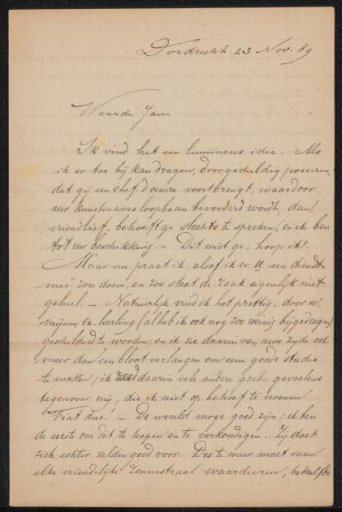 Dordrecht 23 Nov. 89
Waarde Jan.
Ik vind het een lumineus idee. Als
ik er toe bij kan dragen, door geduldig poseeren,
dat gij een chef d'oeuvre voortbrengt, waardoor
uw kunstenaarsloopbaan bevorderd wordt, dan,
vriendlief, behoeft ge slechts te spreken, en ik ben
tot uw beschikking – Dit wist ge, hoop ik!
Maar nu praat ik, alsof ik er U een dienst
mee zou doen, en zoo staat de zaak eigenlijk niet
geheel. – Natuurlijk vind ik het prettig, door u,
mijnen Ex-leerling (al heb ik ook nog zoo weinig bijgedragen)
geschilderd te worden; en ik zie daarin van uwe zijde ook
meer dan een bloot verlangen om eene goede studie
te maken; ik daarin vele andere goede gevoelens
tegenover mij, die ik niet op behoef te noemen.
"Fiat dus." – De wereld moge goed zijn; ik ben
de eerste om dit te hopen en te verkondigen. Zij doet
zich echter zelden goed voor. Des te meer moet men
elke vriendelijke zonnestraal waardeeren,